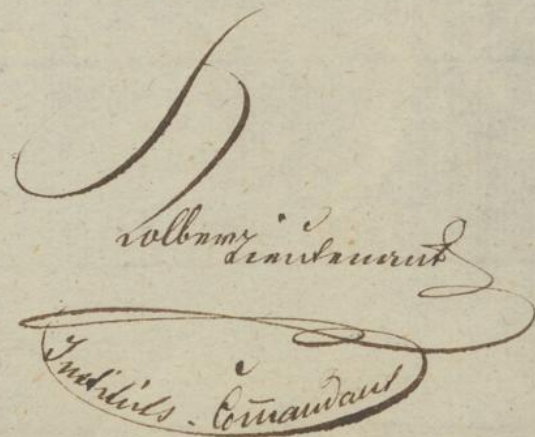 Kolber
Lieutenant
Instituts-Com̅andant